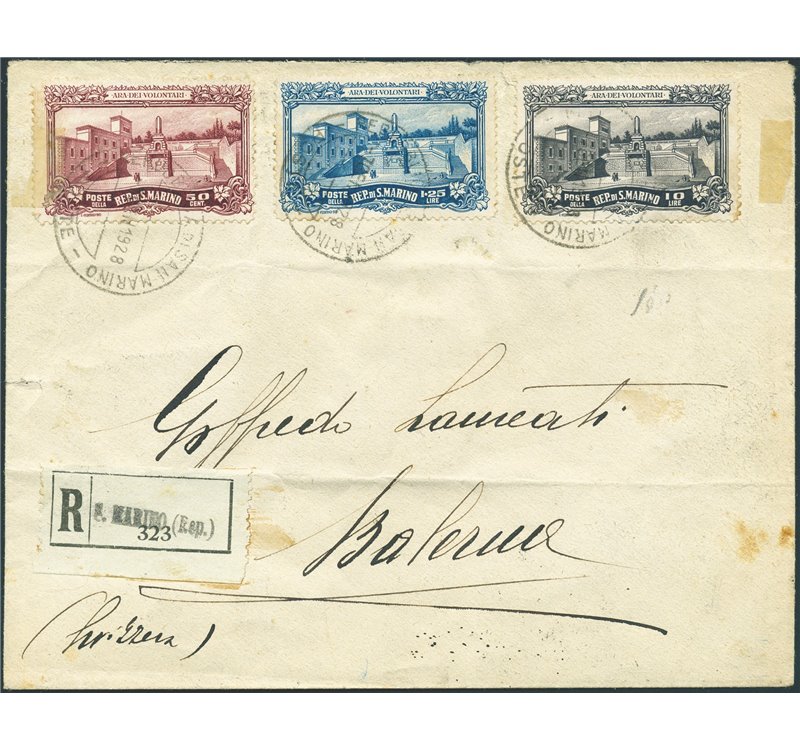 ARA·DEI·VOLONTARI
POSTE DELLA REP. DI S. MARINO 50 CENT.
ARA·DEI·VOLONTARI
POSTE DELLA REP. DI S. MARINO 1·25 LIRE
ARA·DEI·VOLONTARI
POSTE DELLA REP. DI S. MARINO 10 LIRE
DI SAN MARINO
1928
SAN MARINO
28
POSTE
MARINO
Goffredo Laureati
R S. MARINO (Rep.)
323
Balerna
(Svizzera)